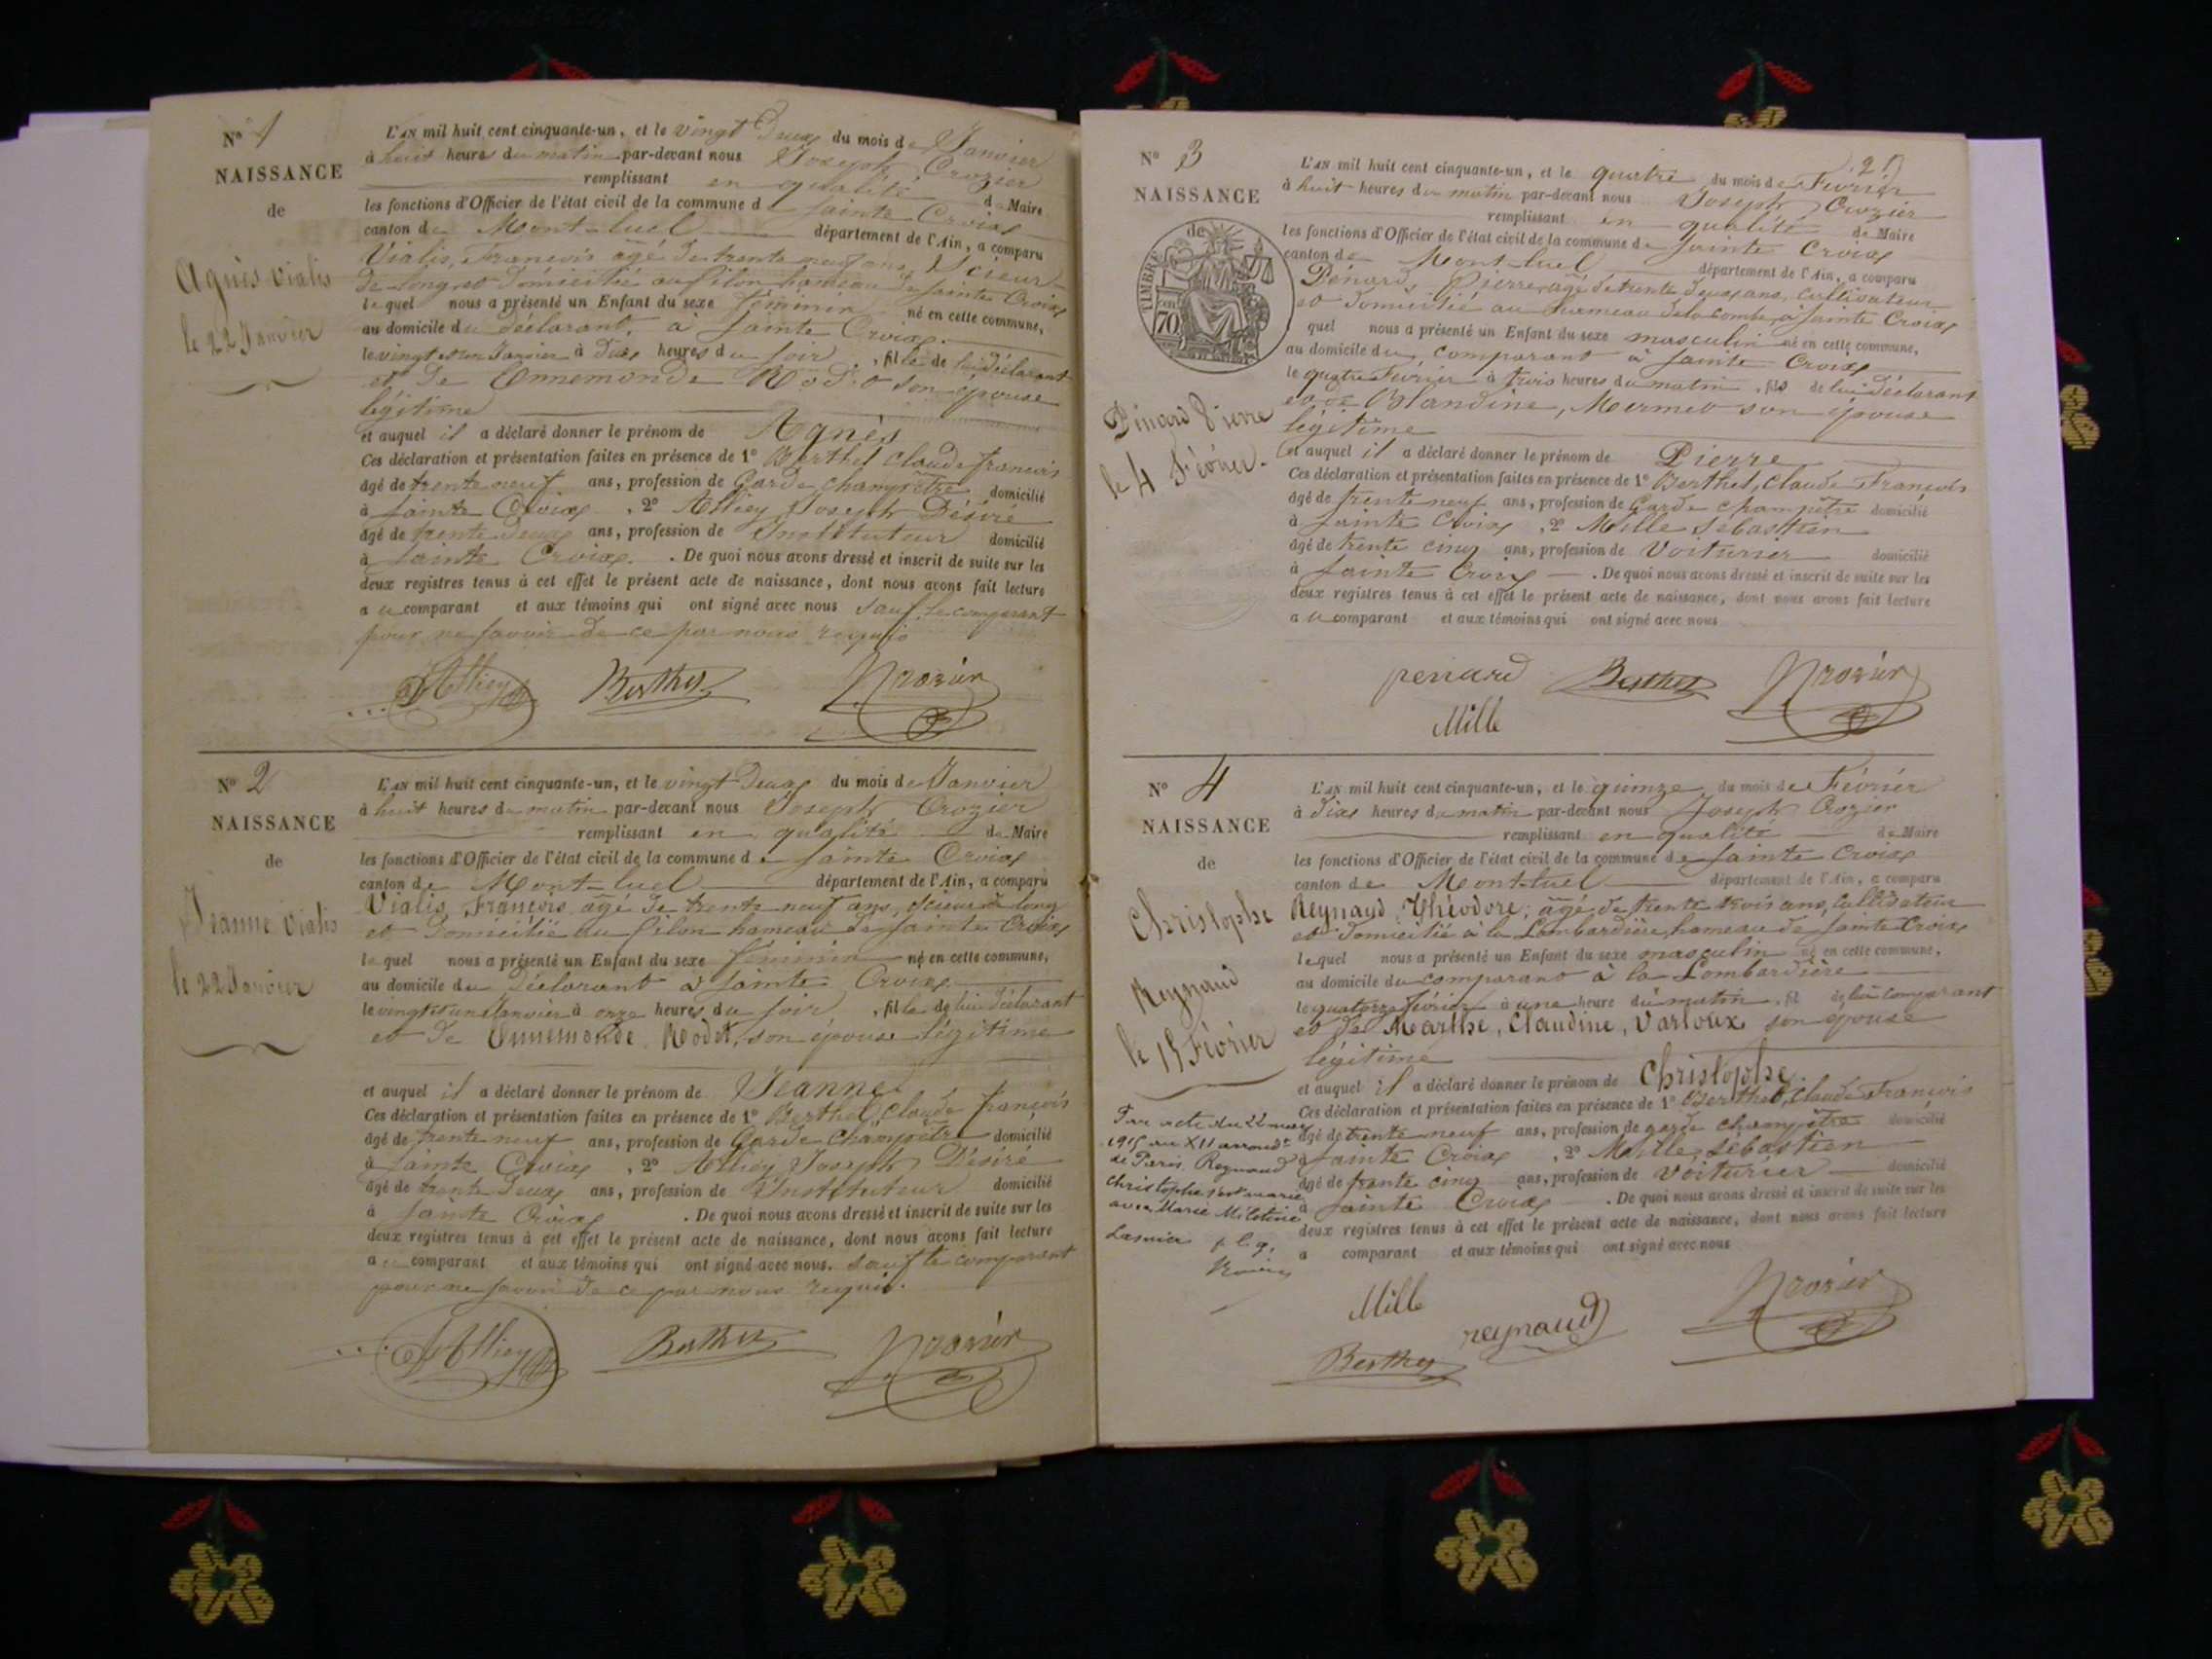 N° 1
NAISSANCE
de
Agnès Vialis
le 22 Janvier
L'AN mil huit cent cinquante-un, et le vingt Deux du mois de Janvier
à huit heures du matin par-devant nous Joseph Crozier
remplissant en qualité de Maire
les fonctions d'Officier de l'état civil de la commune de Sainte Croix
canton de Mont-luel département de l'Ain, a comparu
Vialis, François âgé de trente neuf ans, Scieur
de long et Domicilié au Pilon hameau de Sainte Croix
lequel nous a présenté un Enfant du sexe féminin né en cette commune,
au domicile du déclarant, à Sainte Croix.
le vingt et un Janvier à Dix heures du soir, fille de lui déclarant
et de Ennemonde Rodet son épouse
légitime
et auquel il a déclaré donner le prénom de Agnès
Ces déclaration et présentation faites en présence de 1° Berthet Claude françois
âgé de trente neuf ans, profession de Garde champêtre domicilié
à Sainte Croix, 2° Alliey Joseph Désiré
âgé de trente Deux ans, profession de Instituteur domicilié
à Sainte Croix. De quoi nous avons dressé et inscrit de suite sur les
deux registres tenus à cet effet le présent acte de naissance, dont nous avons fait lecture
au comparant et aux témoins qui ont signé avec nous sauf le comparant
pour ne savoir de ce par nous requis
Alliey Berthet Crozier
N° 2
NAISSANCE
de
Jeanne Vialis
le 22 Janvier
L'AN mil huit cent cinquante-un, et le vingt Deux du mois de Janvier
à huit heures du matin par-devant nous Joseph Crozier
remplissant en qualité de Maire
les fonctions d'Officier de l'état civil de la commune de Sainte Croix
canton de Mont-luel département de l'Ain, a comparu
Vialis, François âgé de trente neuf ans, scieur de long
et Domicilié au Pilon hameau de Sainte Croix
lequel nous a présenté un Enfant du sexe féminin né en cette commune,
au domicile du déclarant à Sainte Croix
le vingt et un Janvier à onze heures du soir, fille de lui déclarant
et de Ennemonde Rodet, son épouse légitime
et auquel il a déclaré donner le prénom de Jeanne
Ces déclaration et présentation faites en présence de 1° Berthet, Claude françois
âgé de trente neuf ans, profession de Garde Champêtre domicilié
à Sainte Croix, 2° Alliey Joseph Désiré
âgé de trente Deux ans, profession de Instituteur domicilié
à Sainte Croix. De quoi nous avons dressé et inscrit de suite sur les
deux registres tenus à cet effet le présent acte de naissance, dont nous avons fait lecture
au comparant et aux témoins qui ont signé avec nous. sauf le comparant
pour ne savoir de ce par nous requis.
Alliey Berthet Crozier
N° 3
NAISSANCE
de
TIMBRE
70
Pénard Pierre
le 4 Février
L'AN mil huit cent cinquante-un, et le quatre du mois de Février
à huit heures du matin par-devant nous Joseph Crozier
remplissant en qualité de Maire
les fonctions d'Officier de l'état civil de la commune de Sainte Croix
canton de Mont-luel département de l'Ain, a comparu
Pénard, Pierre, âgé de trente deux ans, cultivateur
et Domicilié au hameau de la combe, à Sainte Croix
quel nous a présenté un Enfant du sexe masculin né en cette commune,
au domicile du comparant à Sainte Croix
le quatre Février à trois heures du matin, fils de lui déclarant
et de Blandine, Mermet son épouse
légitime
et auquel il a déclaré donner le prénom de Pierre
Ces déclaration et présentation faites en présence de 1° Berthet, Claude François
âgé de trente neuf ans, profession de Garde champêtre domicilié
à Sainte Croix, 2° Mille Sébastien
âgé de trente cinq ans, profession de Voiturier domicilié
à Sainte Croix. De quoi nous avons dressé et inscrit de suite sur les
deux registres tenus à cet effet le présent acte de naissance, dont nous avons fait lecture
au comparant et aux témoins qui ont signé avec nous
penard Berthet Crozier
Mille
N° 4
NAISSANCE
de
Christophe
Reynaud
le 15 Février
L'AN mil huit cent cinquante-un, et le quinze du mois de Février
à dix heures du matin par-devant nous Joseph Crozier
remplissant en qualité de Maire
les fonctions d'Officier de l'état civil de la commune de Sainte Croix
canton de Mont-luel département de l'Ain, a comparu
Reynaud, Théodore, âgé de trente trois ans, Cultivateur
et domicilié à la Lombardière, hameau de Sainte Croix
lequel nous a présenté un Enfant du sexe masculin né en cette commune,
au domicile du comparant à la Lombardière
le quatorze février à une heure du matin, fil de lui comparant
et de Marthe, Claudine, Varloux son épouse
légitime
et auquel il a déclaré donner le prénom de Christophe.
Ces déclaration et présentation faites en présence de 1° Berthet, Claude François
âgé de trente neuf ans, profession de garde champêtre domicilié
à Sainte Croix, 2° Mille, Sébastien
âgé de trente cinq ans, profession de Voiturier domicilié
à Sainte Croix. De quoi nous avons dressé et inscrit de suite sur les
deux registres tenus à cet effet le présent acte de naissance, dont nous avons fait lecture
a comparant et aux témoins qui ont signé avec nous
Par acte du 22 mai
1915 au XII arrondt
de Paris, Reynaud
Christophe s'est marié
avec Marie
Lasnier
Mille reynaud Crozier
Berthet